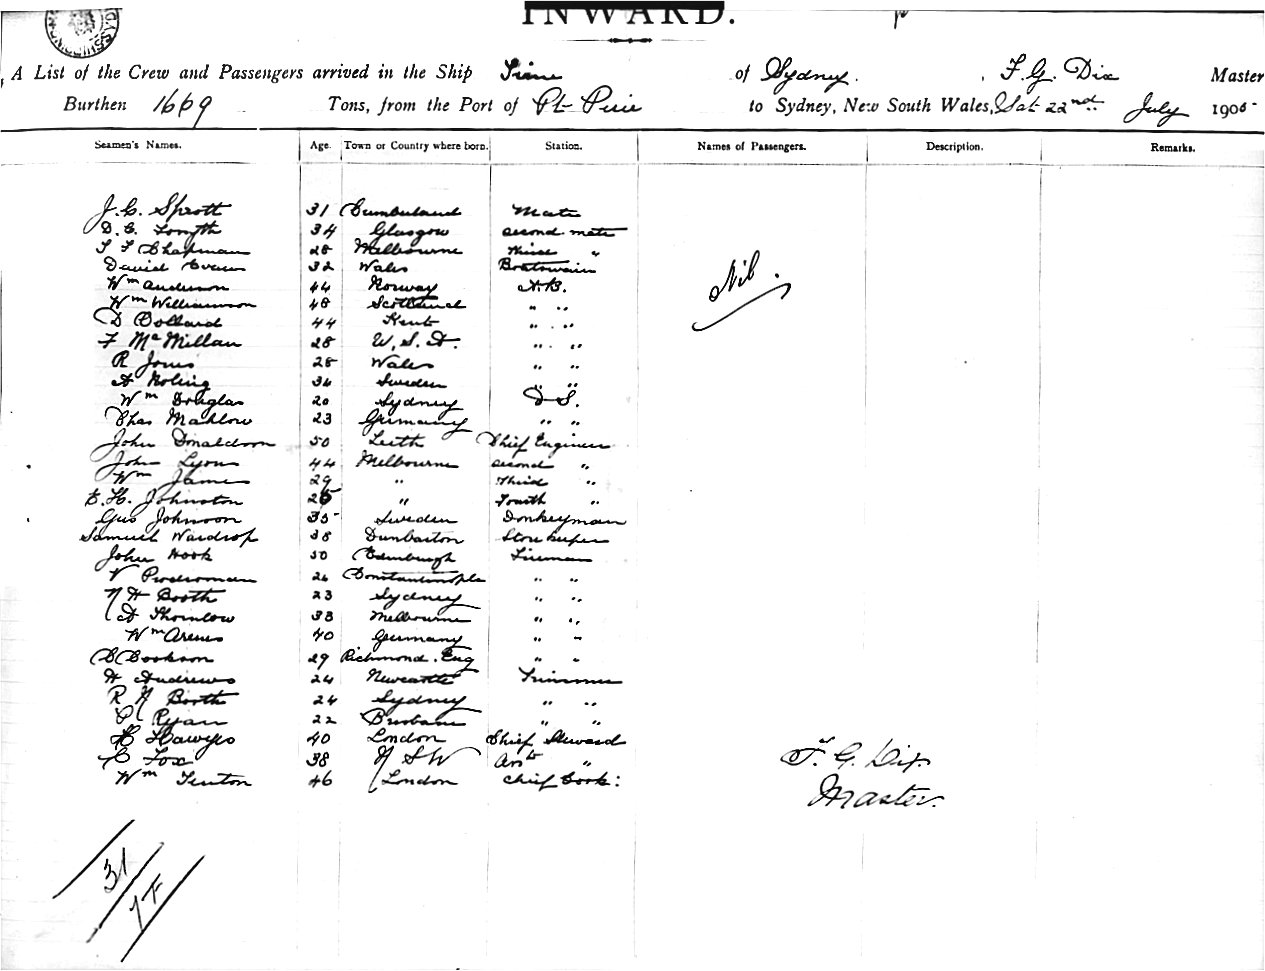 INWARD.
A List of the Crew and Passengers arrived in the Ship Time of Sydney. , F. G. Dix Master
Burthen 1669 Tons, from the Port of Pt Pirie to Sydney, New South Wales, Sat 22nd July 1905
Seamen's Names. Age. Town or Country where born. Station. Names of Passengers. Description. Remarks.
J. C. Sprott 31 Cumberland Mate
D. C. Forsyth 34 Glasgow second mate
T F Chapman 28 Melbourne Third "
David Evans 32 Wales Boatswain
Wm Anderson 44 Norway A.B.
Wm Williamson 48 Scotland " "
D Bollard 44 Kent " "
F McMillan 28 U.S.A. " "
R Jones 28 Wales " "
A Noling 34 Sweden " "
Wm Douglas 20 Sydney D S.
Chas Mahlow 23 Germany " "
John Donaldson 50 Leith Chief Engineer
John Lyons 44 Melbourne second "
Wm James 29 " Third "
E. H. Johnston 25 " Fourth "
Gus Johnson 35 Sweden Donkeyman
Samuel Wardrop 38 Dunbarton Storekeeper
John Hook 50 Edinburgh Fireman
V Prodroman 26 Constantinople " "
N H Booth 23 Sydney " "
A Thornlow 33 Melbourne " "
Wm Arens 40 Germany " "
C Cookson 29 Richmond. Eng " "
H Andrews 24 Newcastle Trimmer
R N Booth 24 Sydney " "
P Ryan 22 Brisbane " "
H Hawyes 40 London Chief Steward
C Fox 38 N S W Asst "
Wm Fenton 46 London Chief Cook:
Nil.
F. G. Dix
Master.
31
1 F